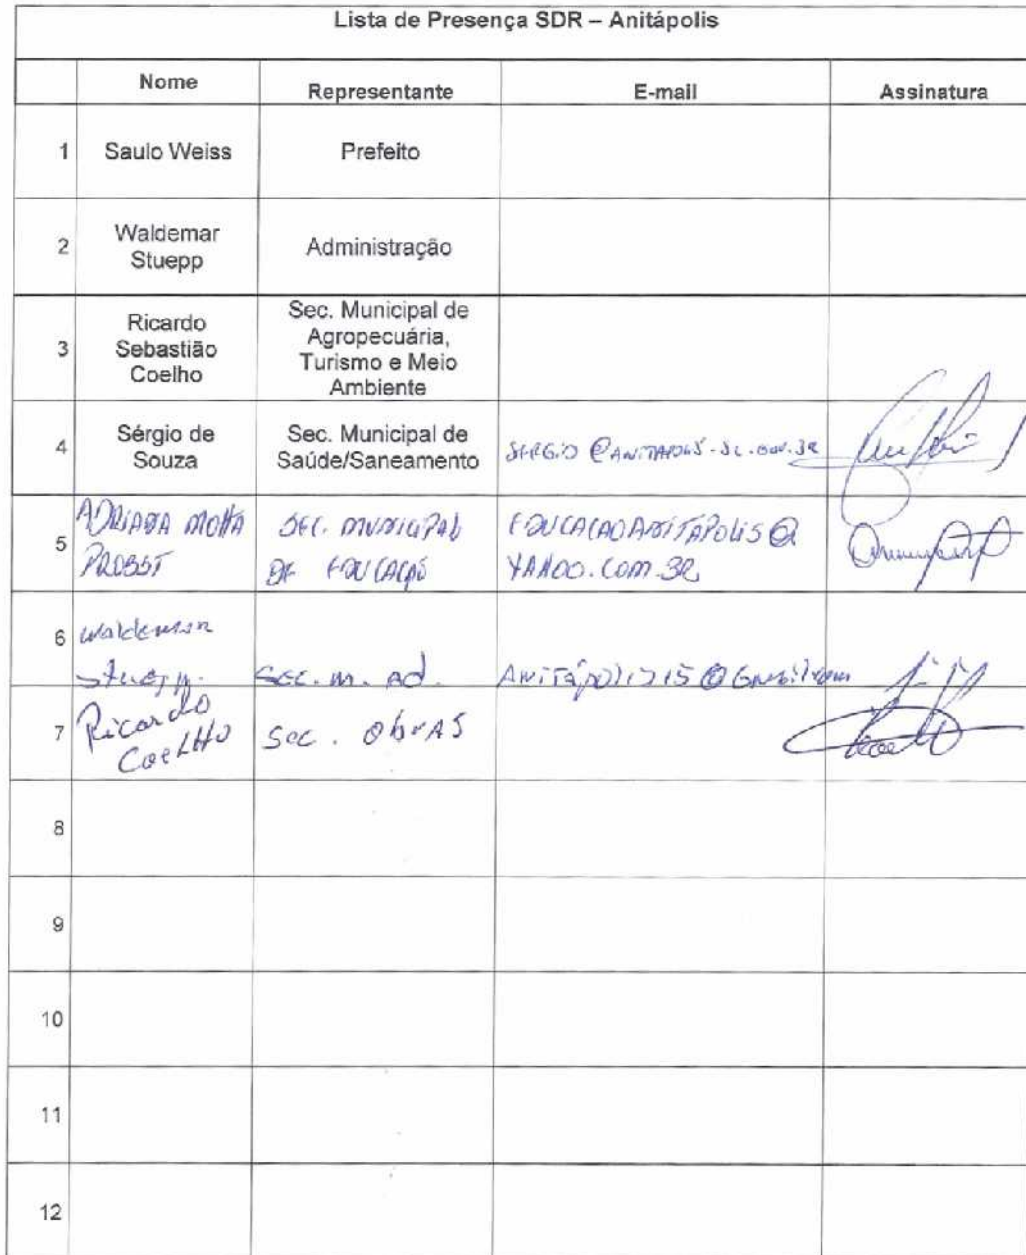 Lista de Presença SDR – Anitápolis
Nome Representante E-mail Assinatura
1 Saulo Weiss Prefeito
2 Waldemar Stuepp Administração
3 Ricardo Sebastião Coelho Sec. Municipal de Agropecuária, Turismo e Meio Ambiente
4 Sérgio de Souza Sec. Municipal de Saúde/Saneamento SERGIO@ANITAPOLIS.SC.GOV.BR
5 ADRIANA MOTTA PROBST SEC. MUNICIPAL DE EDUCAÇÃO EDUCACAOANITAPOLIS@YAHOO.COM.BR
6 Waldemar Stuepp. Sec. M. Ad.
7 Ricardo Coelho Sec. Obras
8
9
10
11
12